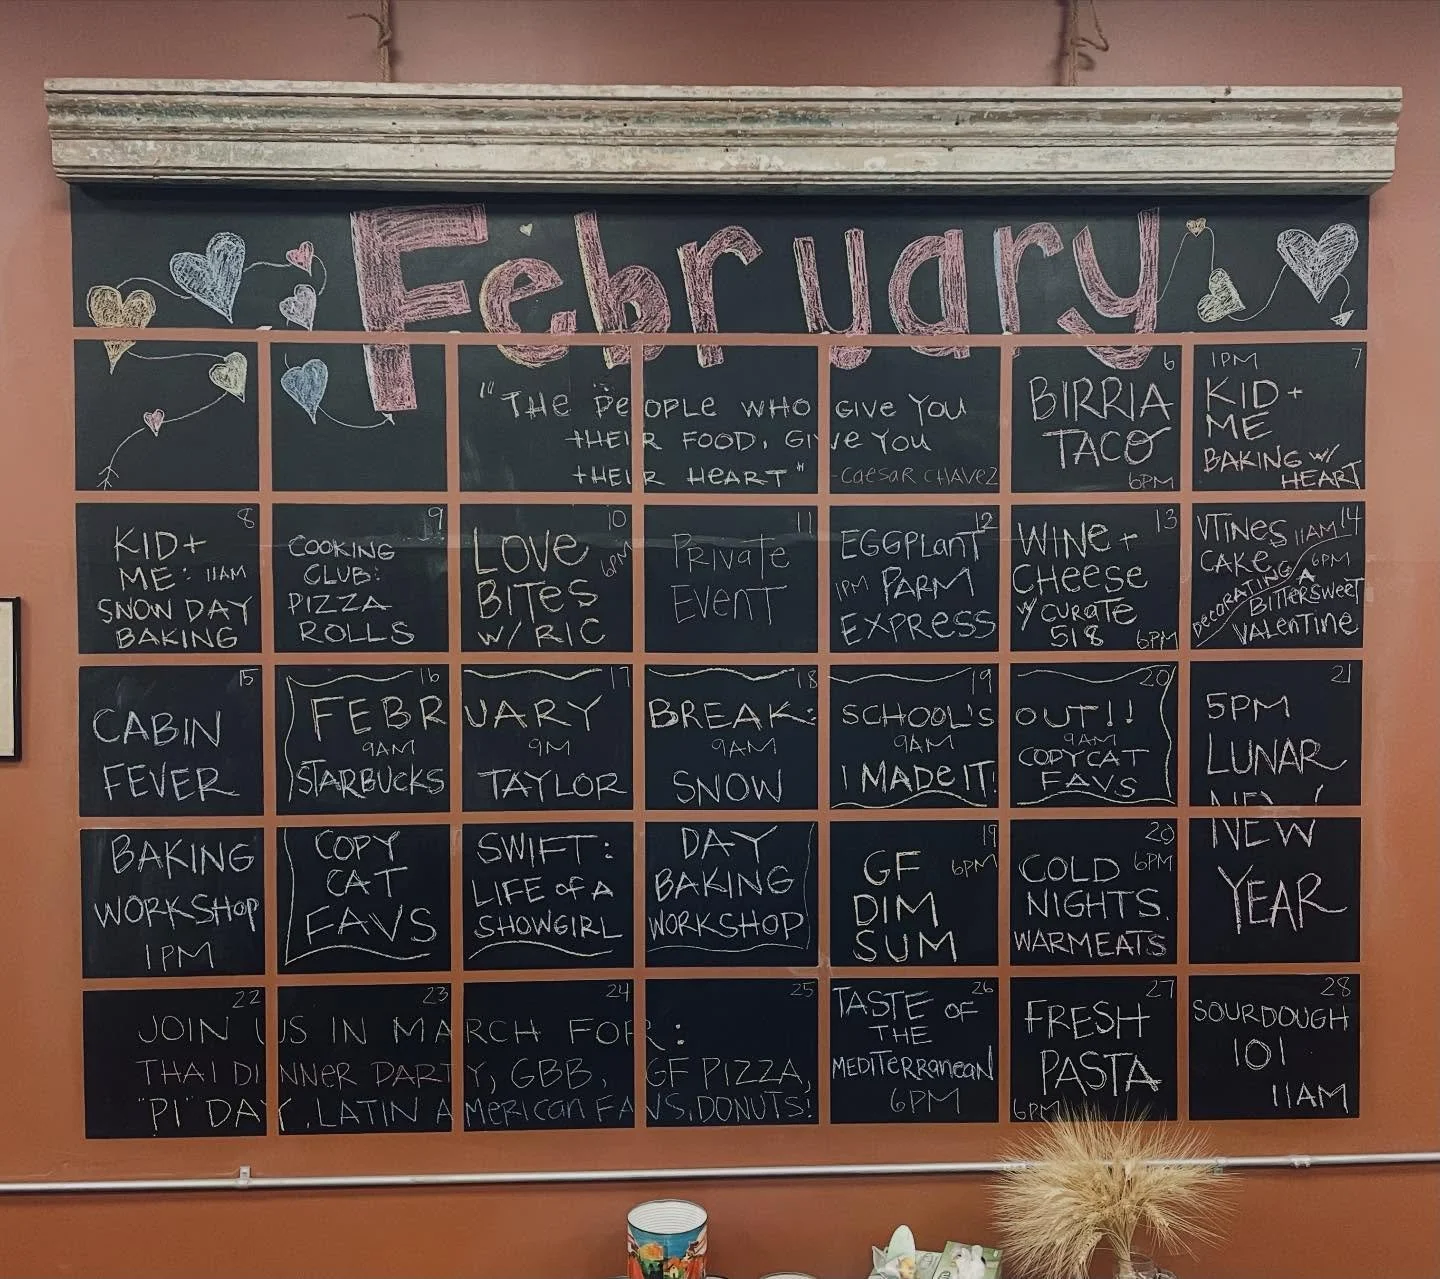 February
"THE PEOPLE WHO GIVE YOU
THEIR FOOD, GIVE YOU
THEIR HEART"
-CAESAR CHAVEZ
6
BIRRIA
TACO
6PM
1PM 7
KID +
ME
BAKING W/
HEART
8
KID +
ME: 11AM
SNOW DAY
BAKING
9
COOKING
CLUB:
PIZZA
ROLLS
10
LOVE
6PM
BITES
W/ RIC
11
PRIVATE
EVENT
12
EGGPLANT
1PM PARM
EXPRESS
13
WINE +
CHEESE
W/ CURATE
518 6PM
VTINES 11AM 14
CAKE
DECORATING
6PM
A
BITTERSWEET
VALENTINE
15
CABIN
FEVER
BAKING
WORKSHOP
1PM
16 17 18 19 20
FEBRUARY BREAK: SCHOOL'S OUT!!
9AM
STARBUCKS
COPY
CAT
FAVS
9M
TAYLOR
SWIFT:
LIFE OF A
SHOWGIRL
9AM
SNOW
DAY
BAKING
WORKSHOP
9AM
I MADE IT!
9AM
COPYCAT
FAVS
19
GF 6PM
DIM
SUM
20
COLD 6PM
NIGHTS.
WARMEATS
21
5PM
LUNAR
NEW
YEAR
22 23 24 25
JOIN US IN MARCH FOR:
THAI DINNER PARTY, GBB, GF PIZZA,
"PI" DAY, LATIN AMERICAN FAVS, DONUTS!
26
TASTE OF
THE
MEDITERRANEAN
6PM
27
FRESH
PASTA
6PM
28
SOURDOUGH
101
11AM